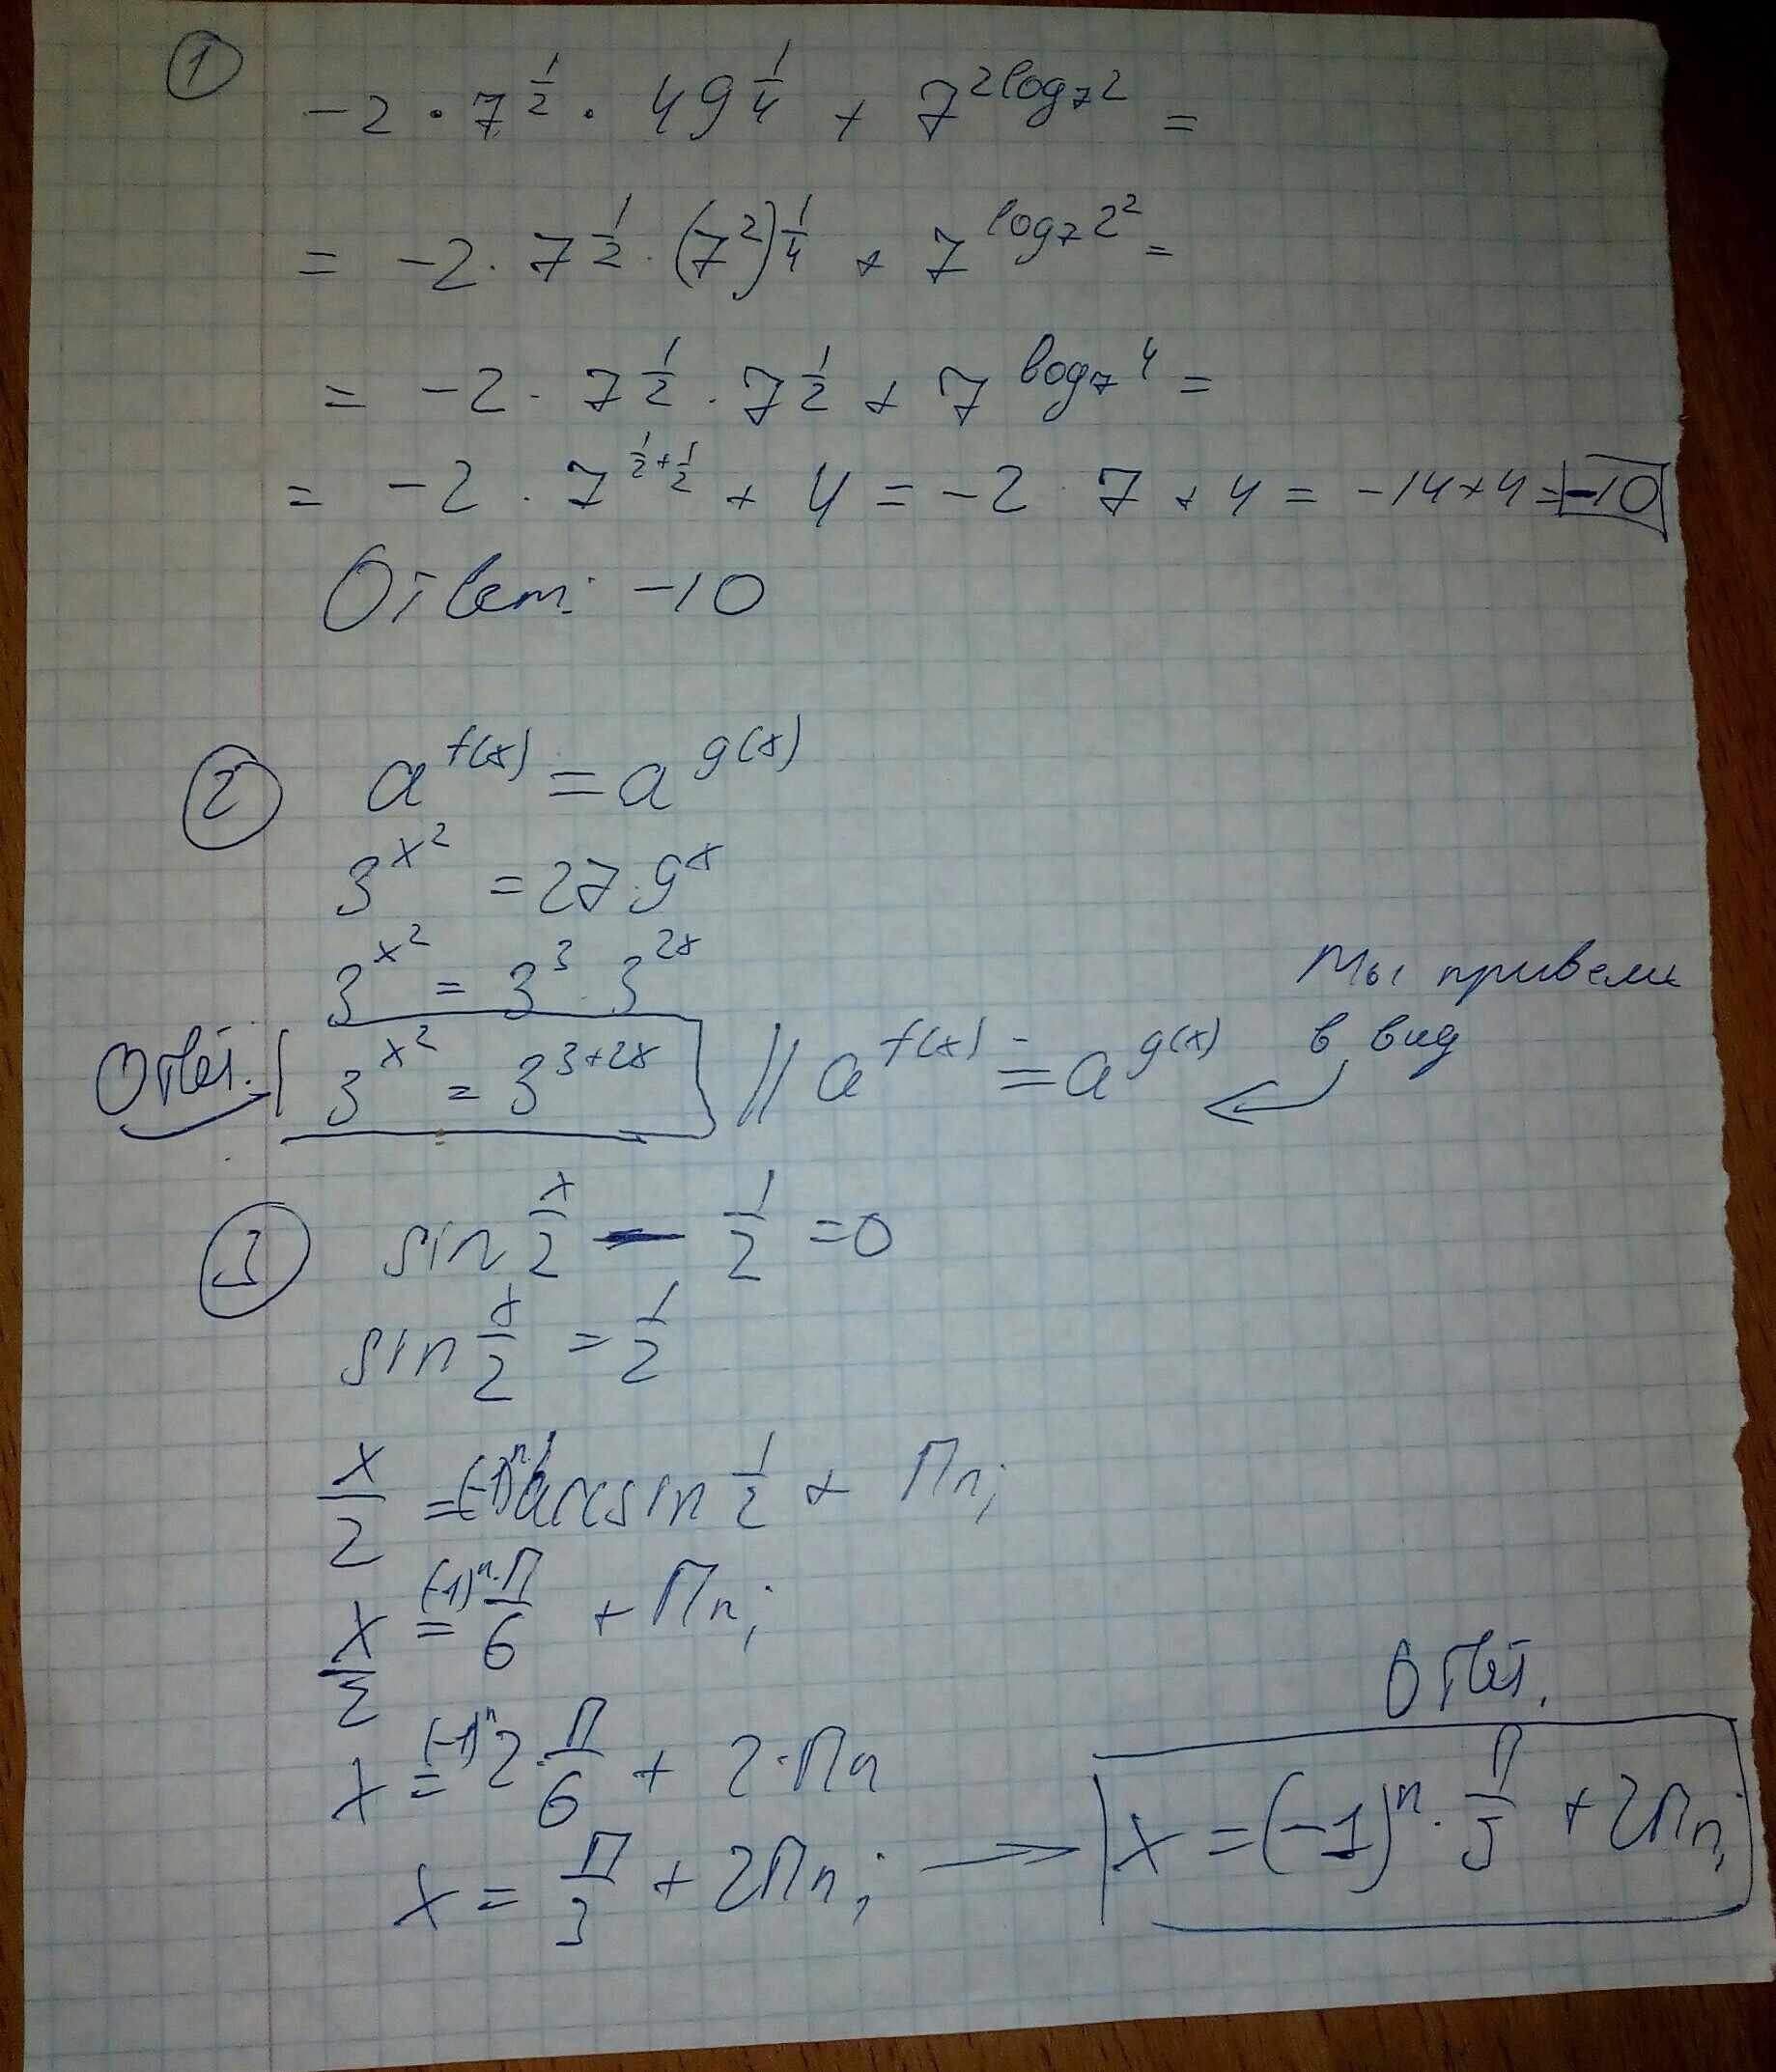 ① -2 · 7^(1/2) · 49^(1/4) + 7^(2log₇2) =
= -2 · 7^(1/2) · (7²)^(1/4) + 7^(log₇2²) =
= -2 · 7^(1/2) · 7^(1/2) + 7^(log₇4) =
= -2 · 7^(1/2+1/2) + 4 = -2 · 7 + 4 = -14+4 = -10
Ответ: -10
② a^(f(x)) = a^(g(x))
3^(x²) = 27·9^x
3^(x²) = 3³·3^(2x)
Ответ. 3^(x²) = 3^(3+2x) // a^(f(x)) = a^(g(x))
Мы привели
в вид
③ sin x/2 - 1/2 = 0
sin x/2 = 1/2
x/2 = (-1)^n arcsin 1/2 + Пn;
x/2 = (-1)^n · П/6 + Пn;
x = (-1)^n 2 · П/6 + 2·Пn
x = П/3 + 2Пn; →
Ответ.
x = (-1)^n · П/3 + 2Пn;